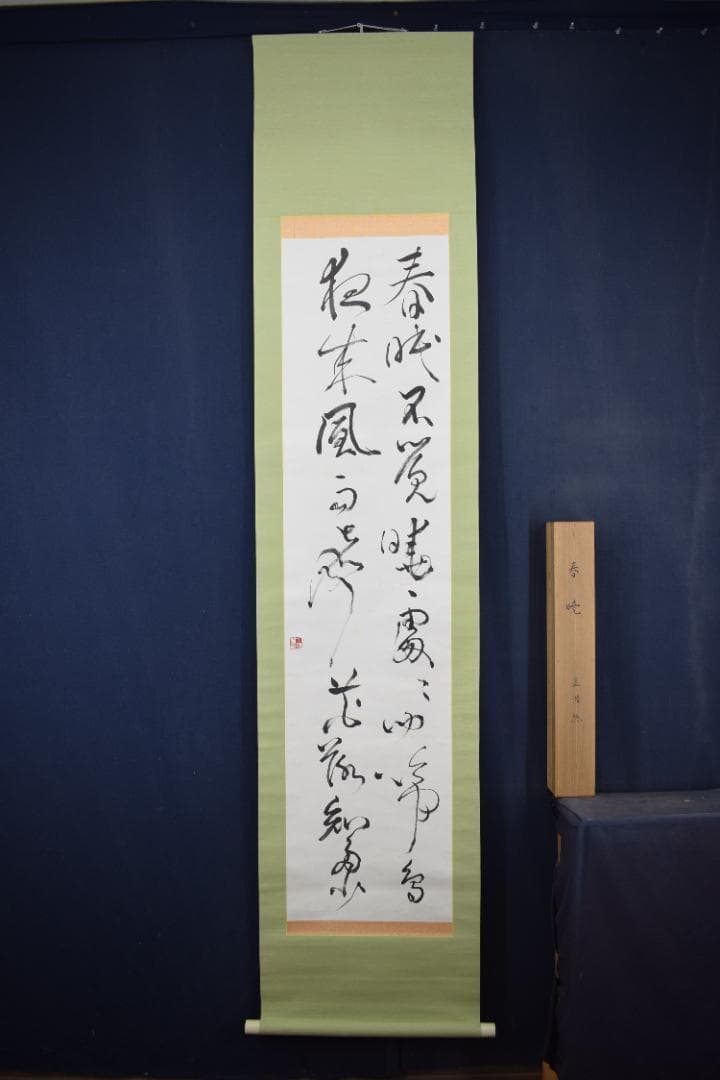 春眠不覚曉處〻聞啼鳥
夜来風雨聲花落知多少
春曉